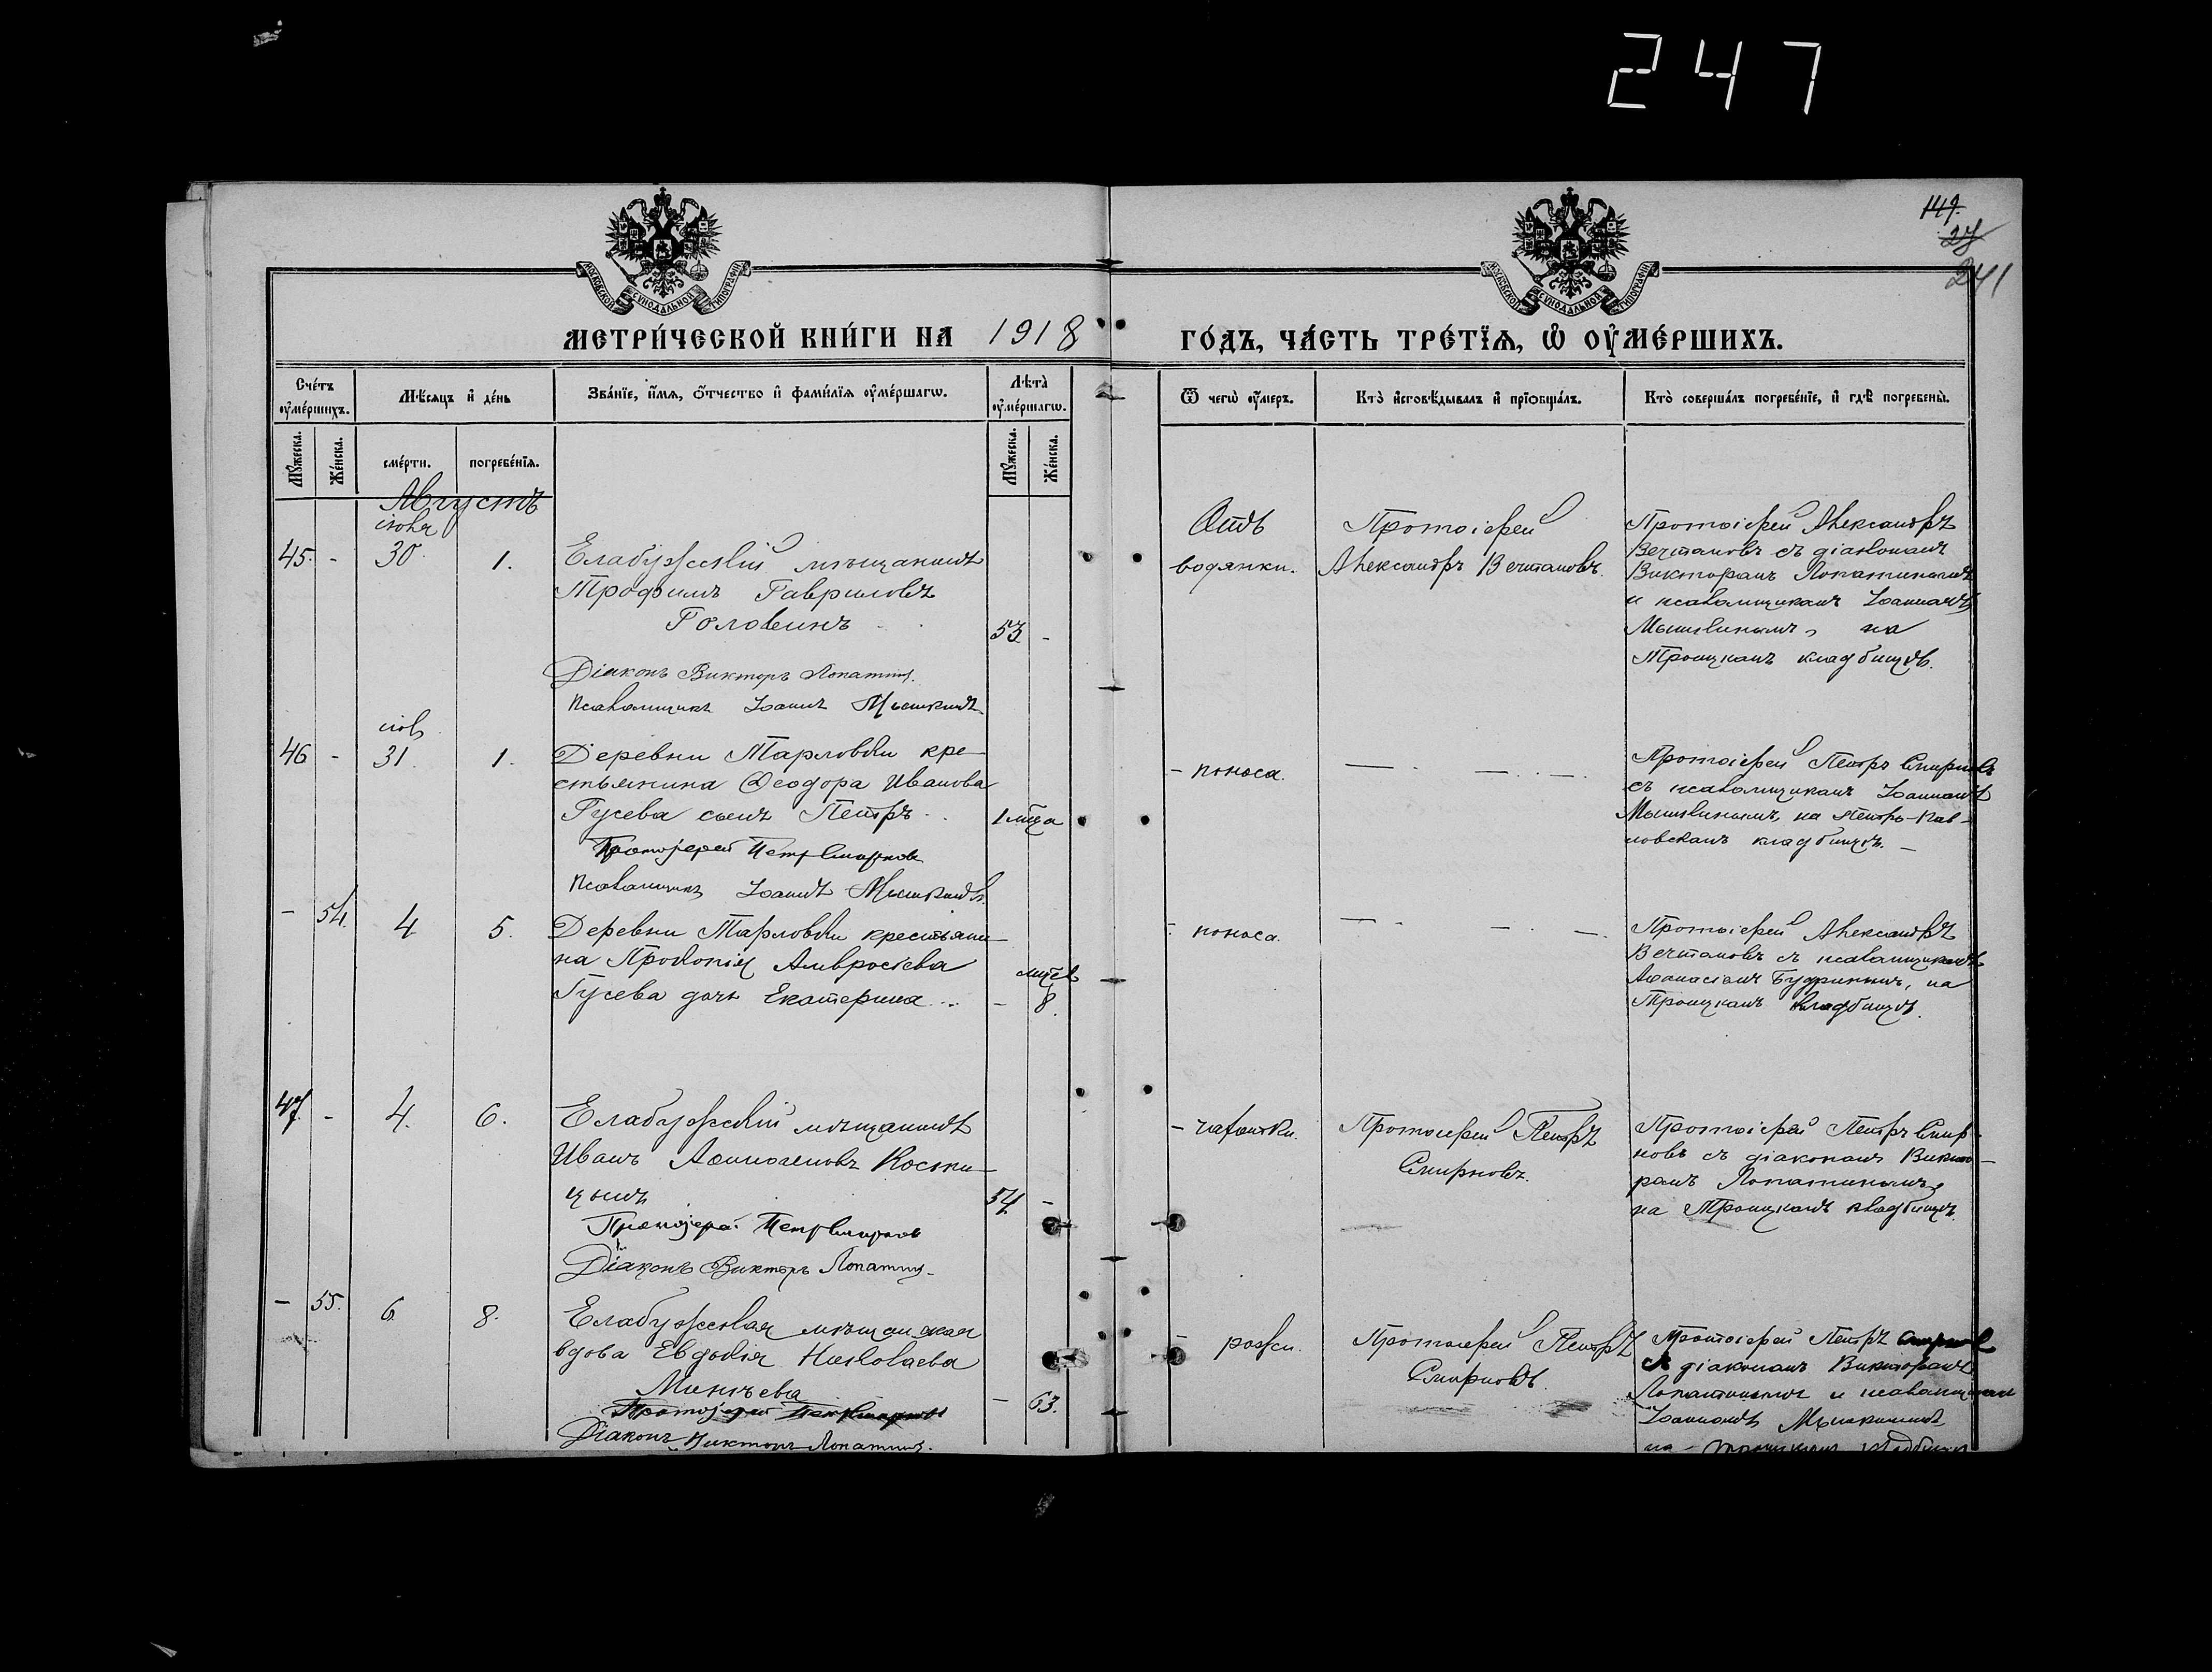 247
149.
27
241
МОСКОВСКОЙ СѴНОДАЛЬНОЙ ТИПОГРАФІИ
МОСКОВСКОЙ СѴНОДАЛЬНОЙ ТИПОГРАФІИ
МЕТРИ́ЧЕСКОЙ КНИ́ГИ НА 1918 ГО́ДЪ, ЧА́СТЬ ТРЕ́ТЇѦ, Ѡ҆ ОУ҆МЕ́РШИХЪ.
Сче́тъ оу҆ме́ршихъ.
Мѣ́сяцъ и҆ де́нь
Зва́нїе, и҆́мѧ, ѻ҆́тчество и҆ фами́лїѧ оу҆ме́ршагѡ.
Лѣта̀ оу҆ме́ршагѡ.
Ѿ чегѡ̀ оу҆́меръ.
Кто̀ и҆сповѣ́дывалъ и҆ прїѡбща́лъ.
Кто̀ соверша́лъ погребе́нїе, и҆ гдѣ̀ погребены̀.
Мꙋ́жеска.
Же́нска.
сме́рти.
погребе́нїѧ.
Мꙋ́жеска.
Же́нска.
Августъ
іюля
45. - 30. 1.
Елабужскій мѣщанинъ
Трофимъ Гавриловъ
Головинъ
53 -
Діаконъ Викторъ Лопатинъ.
Псаломщикъ Іоаннъ Мышкинъ.
Отъ
водянки.
Протоіерей
Александръ Вечтомовъ.
Протоіерей Александръ
Вечтомовъ съ діакономъ
Викторомъ Лопатинымъ
и псаломщикомъ Іоанномъ
Мышкинымъ, на
Троицкомъ кладбищѣ.
іюл
46 - 31. 1.
Деревни Тарловки кре-
стьянина Ѳеодора Иванова
Гусева сынъ Петръ
1 мѣсца
Протоjерей Петръ Смирнов
Псаломщикъ Іоаннъ Мышкинъ.
- поноса.
Протоіерей Петръ Смирновъ
съ псаломщикомъ Іоанномъ
Мышкинымъ, на Петро-Пав-
ловскомъ кладбищѣ. -
- 54. 4. 5.
Деревни Тарловки крестьяни-
на Прокопія Амвросіева
Гусева дочь Екатерина
мѣсц.
- 8.
- поноса.
Протоіерей Александръ
Вечтомовъ съ псаломщикомъ
Аѳанасіемъ Будринымъ, на
Троицкомъ кладбищѣ.
47. - 4. 6.
Елабужскій мѣщанинъ
Иванъ Аѳиногеновъ Косты-
цынъ
54 -
Протоjерей Петръ Смирнов
Діаконъ Викторъ Лопатинъ.
- чахотки.
Протоіерей Петръ
Смирновъ.
Протоіерей Петръ Смир-
новъ съ діакономъ Викто-
ромъ Лопатинымъ,
на Троицкомъ кладбищѣ.
- 55. 6. 8.
Елабужская мѣщанская
вдова Евдокія Николаева
Минѣева
- 63.
Протоjерей Петръ Смирнов
Діаконъ Викторъ Лопатинъ.
- рожи.
Протоіерей Петръ
Смирновъ.
Протоіерей Петръ Смирнов
съ діакономъ Викторомъ
Лопатинымъ и псаломщикомъ
Іоанномъ Мышкинымъ,
на Троицкомъ кладбищѣ